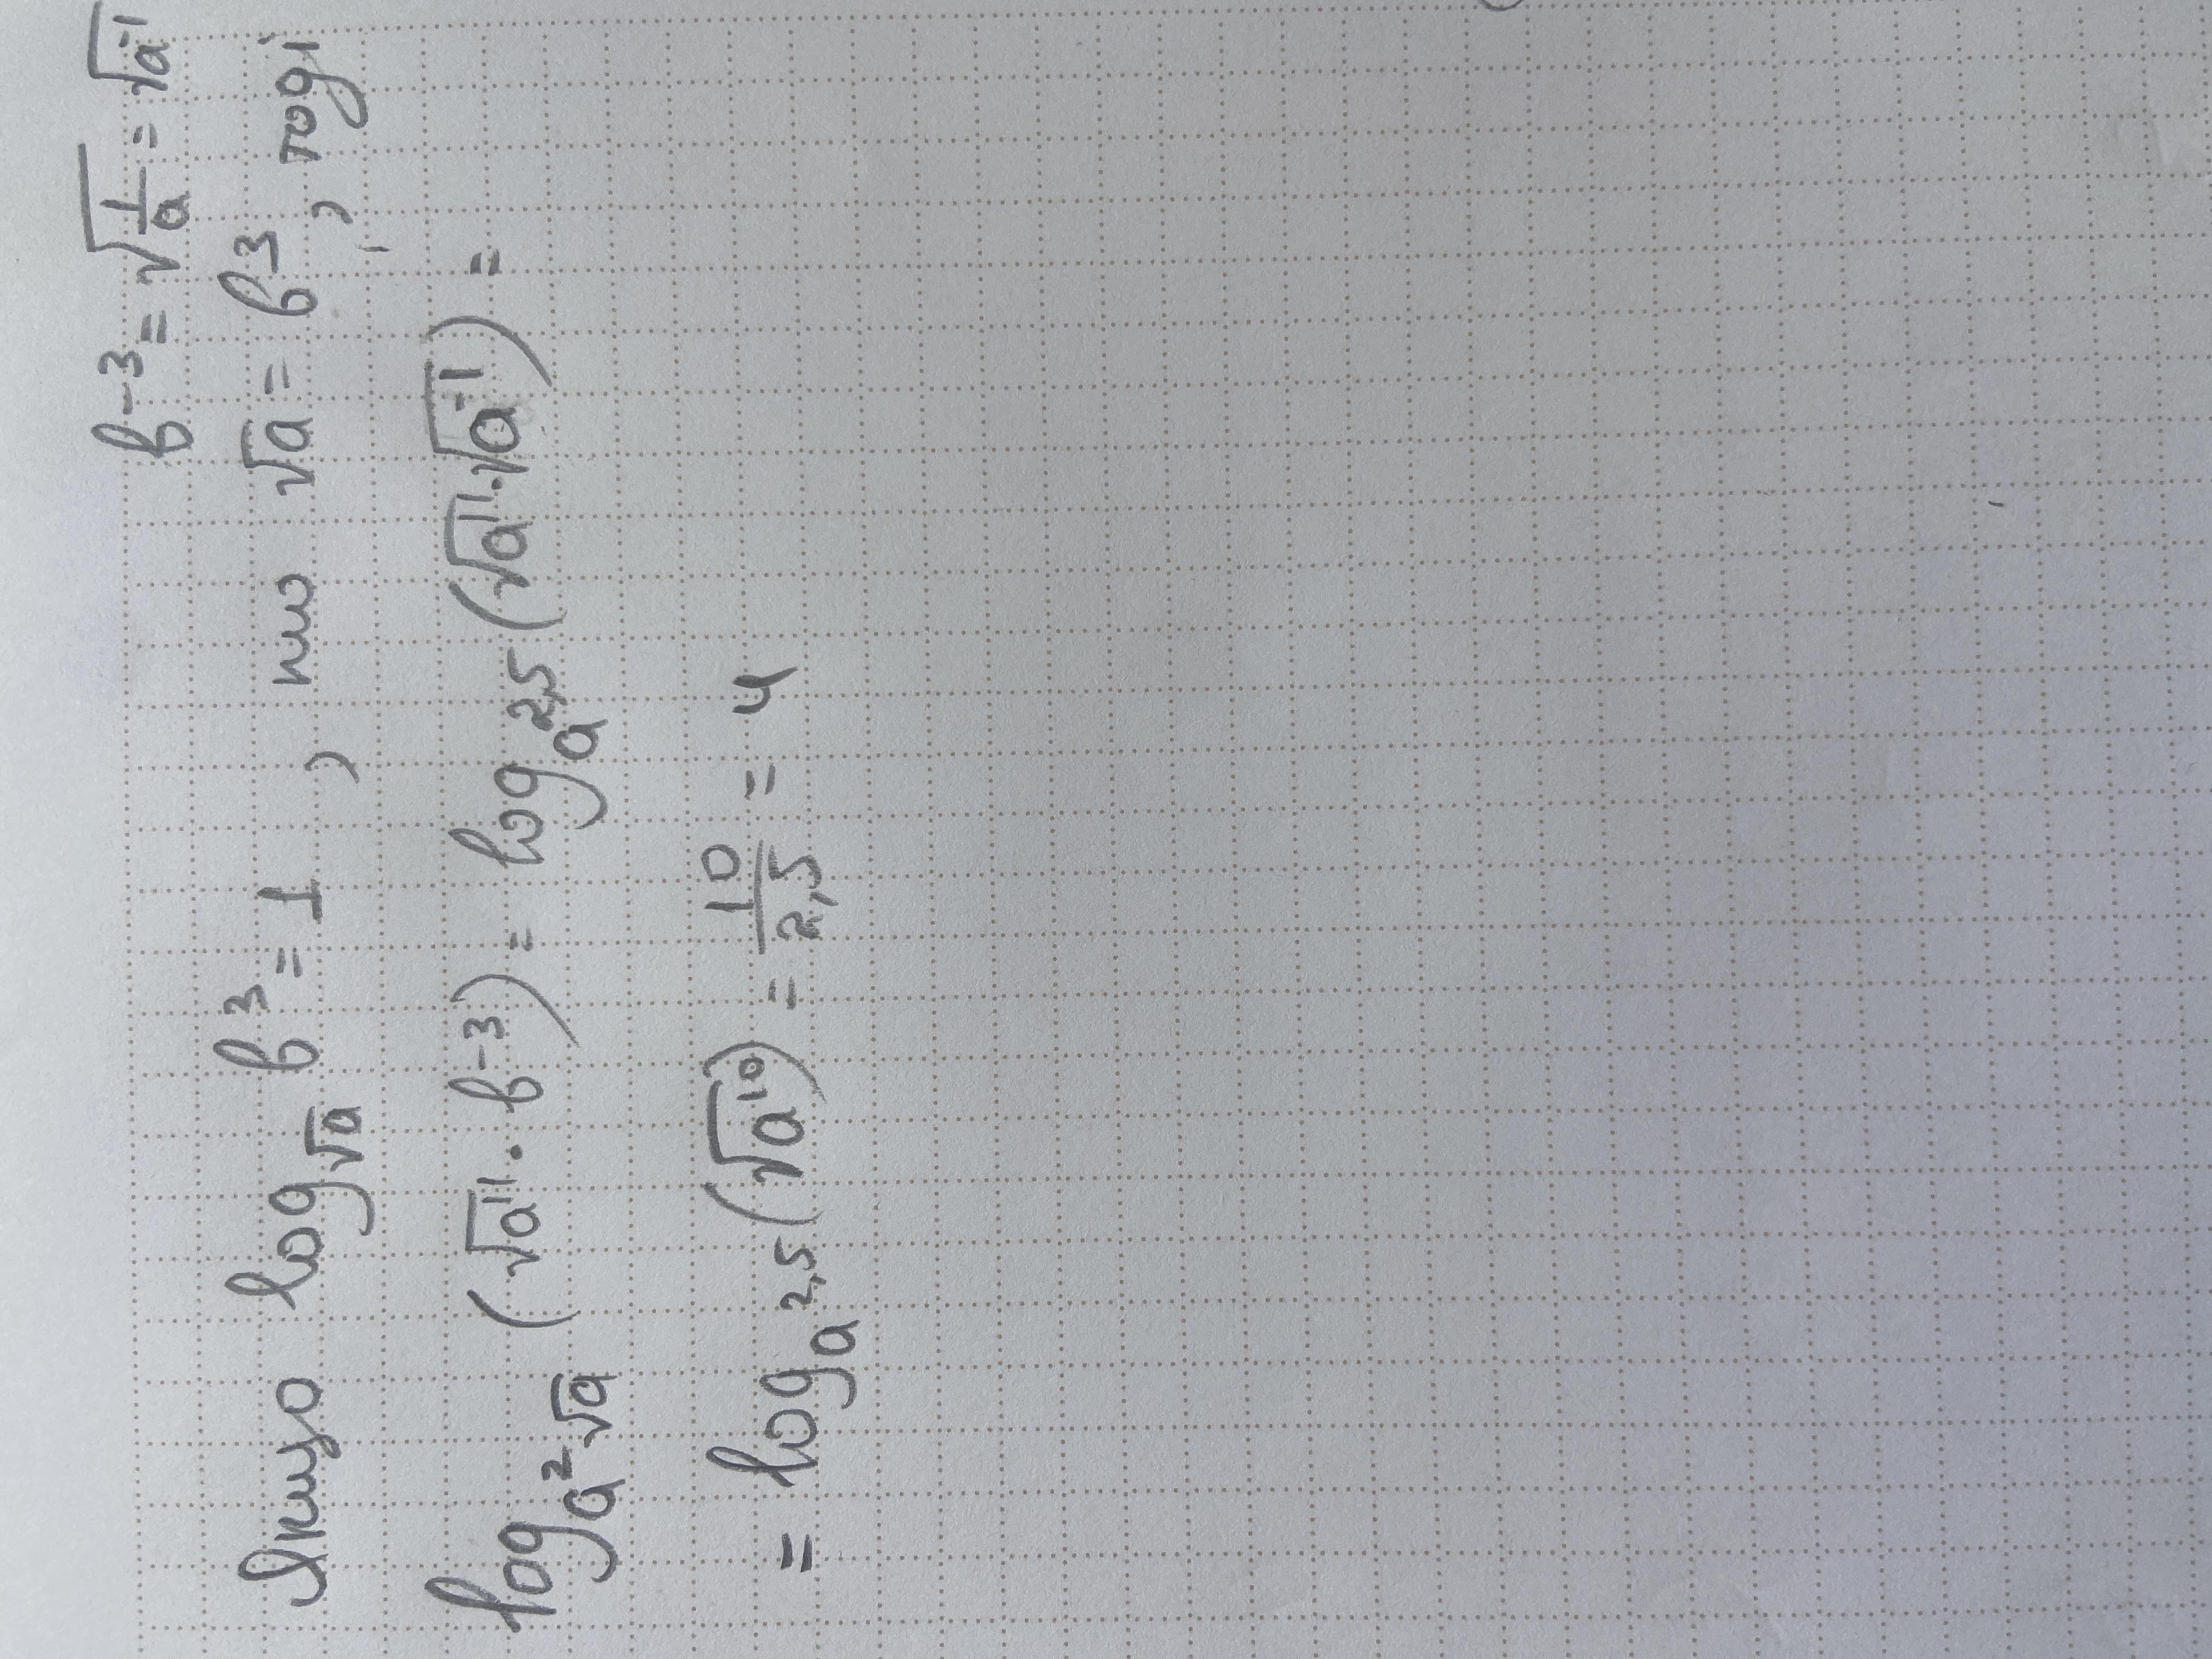 b⁻³ = √(1/a) = √a⁻¹
Якщо log_√a b³ = 1 , то √a = b³ , тоді
log_a²√a (√a¹¹ · b⁻³) = log_a^2,5 (√a¹¹ · √a⁻¹) =
= log_a^2,5 (√a¹⁰) = 10/2,5 = 4